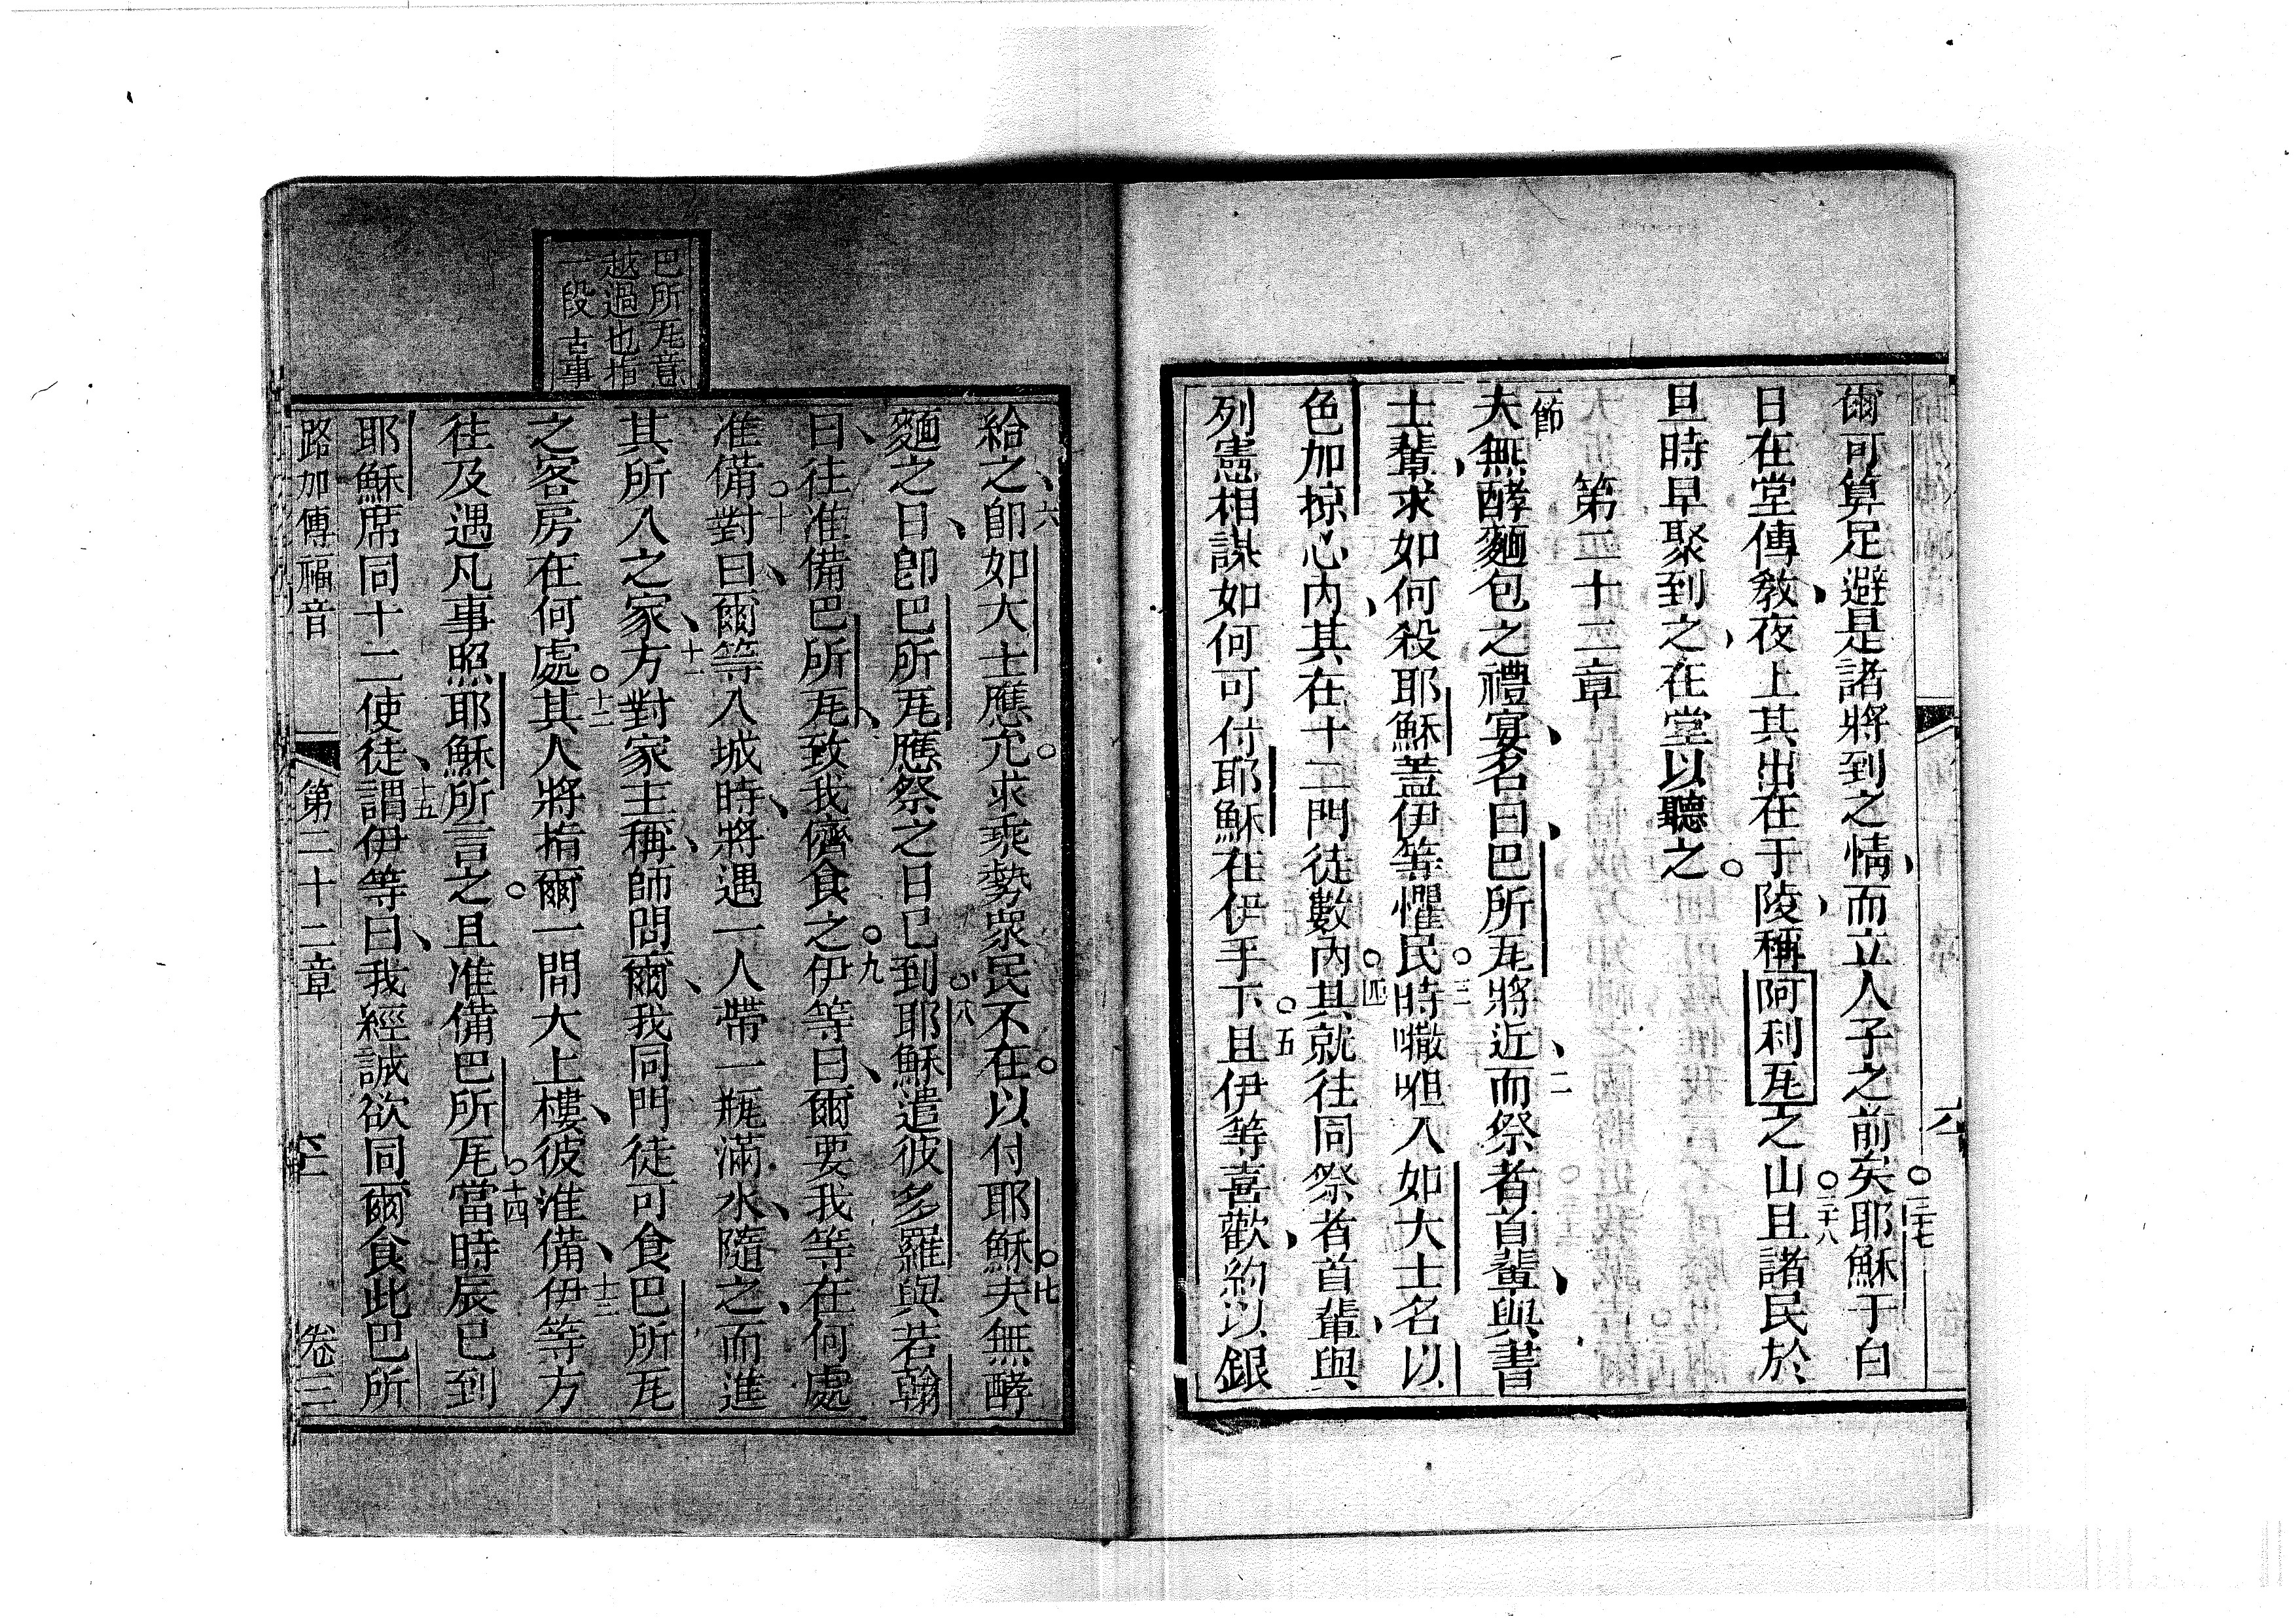 爾可算足避是諸將到之情而立人子之前矣耶穌于白
三十七
日在堂傳教夜上其出在于陵稱阿利瓦之山且諸民於
三十八
旦時早聚到之在堂以聽之
第二十二章
一節
夫無酵麵包之禮宴名曰巴所瓦將近而祭者首輩與書
二
士輩求如何殺耶穌蓋伊等懼民時嘰呾入如大士名以
三
色加掠心內其在十二門徒數內其就往同祭者首輩與
四
列憲相謀如何可付耶穌在伊手下且伊等喜歡約以銀
五
巴所瓦音
越過也指
一段古事
給之即如大士應允求乘勢眾民不在以付耶穌夫無酵
六
七
麵之日即巴所瓦應祭之日已到耶穌遣彼多羅與若翰
八
曰往准備巴所瓦致我儕食之伊等曰爾要我等在何處
九
准備對曰爾等入城時將遇一人帶一瓶滿水隨之而進
十
其所入之家方對家主稱師問爾我同門徒可食巴所瓦
十一
之客房在何處其人將指爾一間大上樓彼准備伊等方
十二
十三
往及遇凡事照耶穌所言之且准備巴所瓦當時辰已到
十四
耶穌席同十二使徒謂伊等曰我經誠欲同爾食此巴所
十五
路加傳福音
第二十二章
卷三